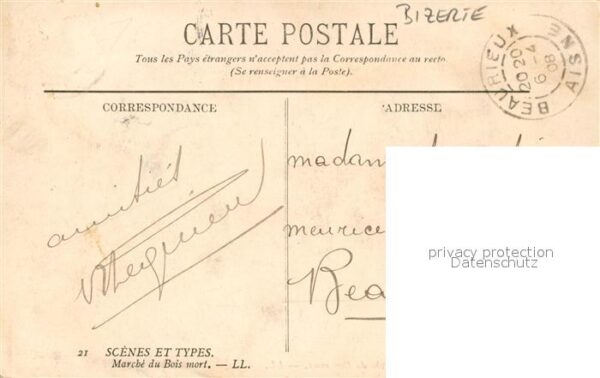 BIZERTE
CARTE POSTALE
Tous les Pays étrangers n'acceptent pas la Correspondance au recto
(Se renseigner à la Poste).
BEAURIEUX AISNE
20 20
6 -4
08
CORRESPONDANCE
ADRESSE
amitiés
madam
meurice
Bea
privacy protection
Datenschutz
21 SCÈNES ET TYPES.
Marché du Bois mort. — LL.